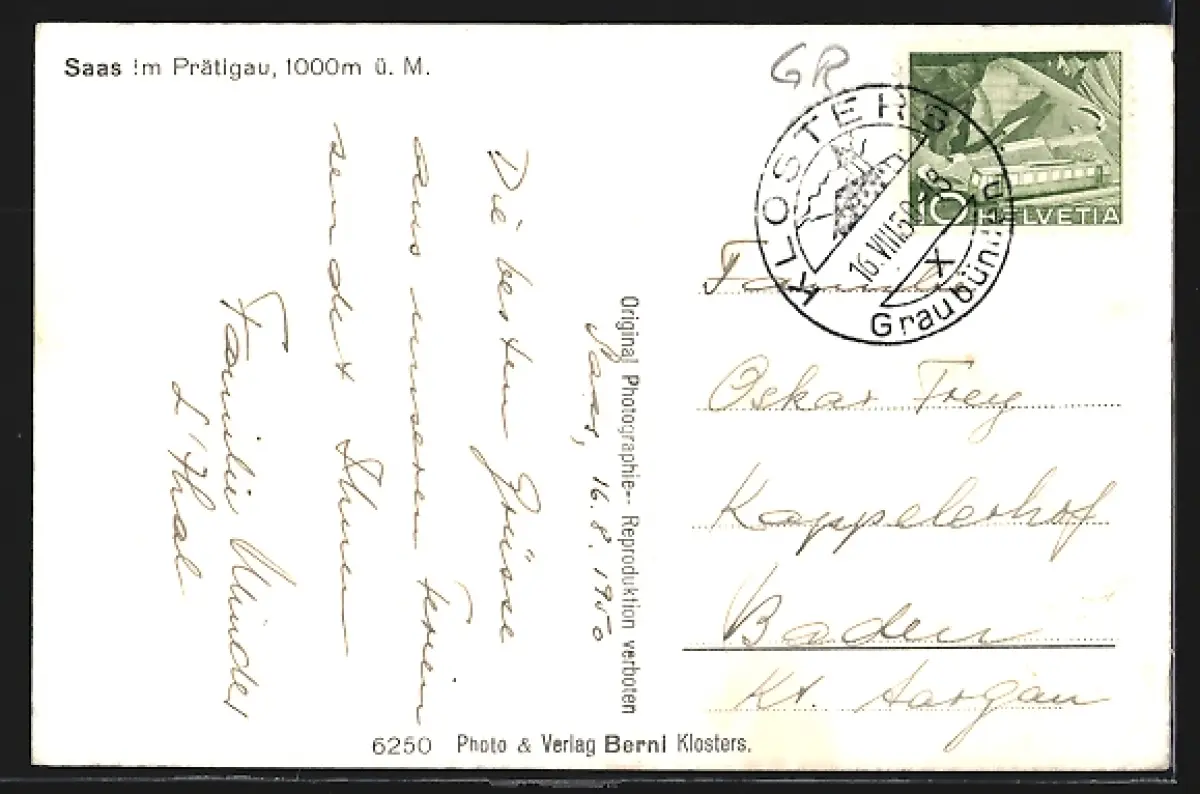 Saas im Prätigau, 1000m ü. M.
GR
KLOSTERS
16.VIII.50
X
Graubünden
10 HELVETIA
Saas, 16.8.1950
Die besten Grüsse
aus unseren Ferien
sendet Ihnen
Familie Minder
L'thal
Original Photographie-- Reproduktion verboten
Familie
Oskar Frey
Kappelerhof
Baden
Kt. Aargau
6250 Photo & Verlag Berni Klosters.